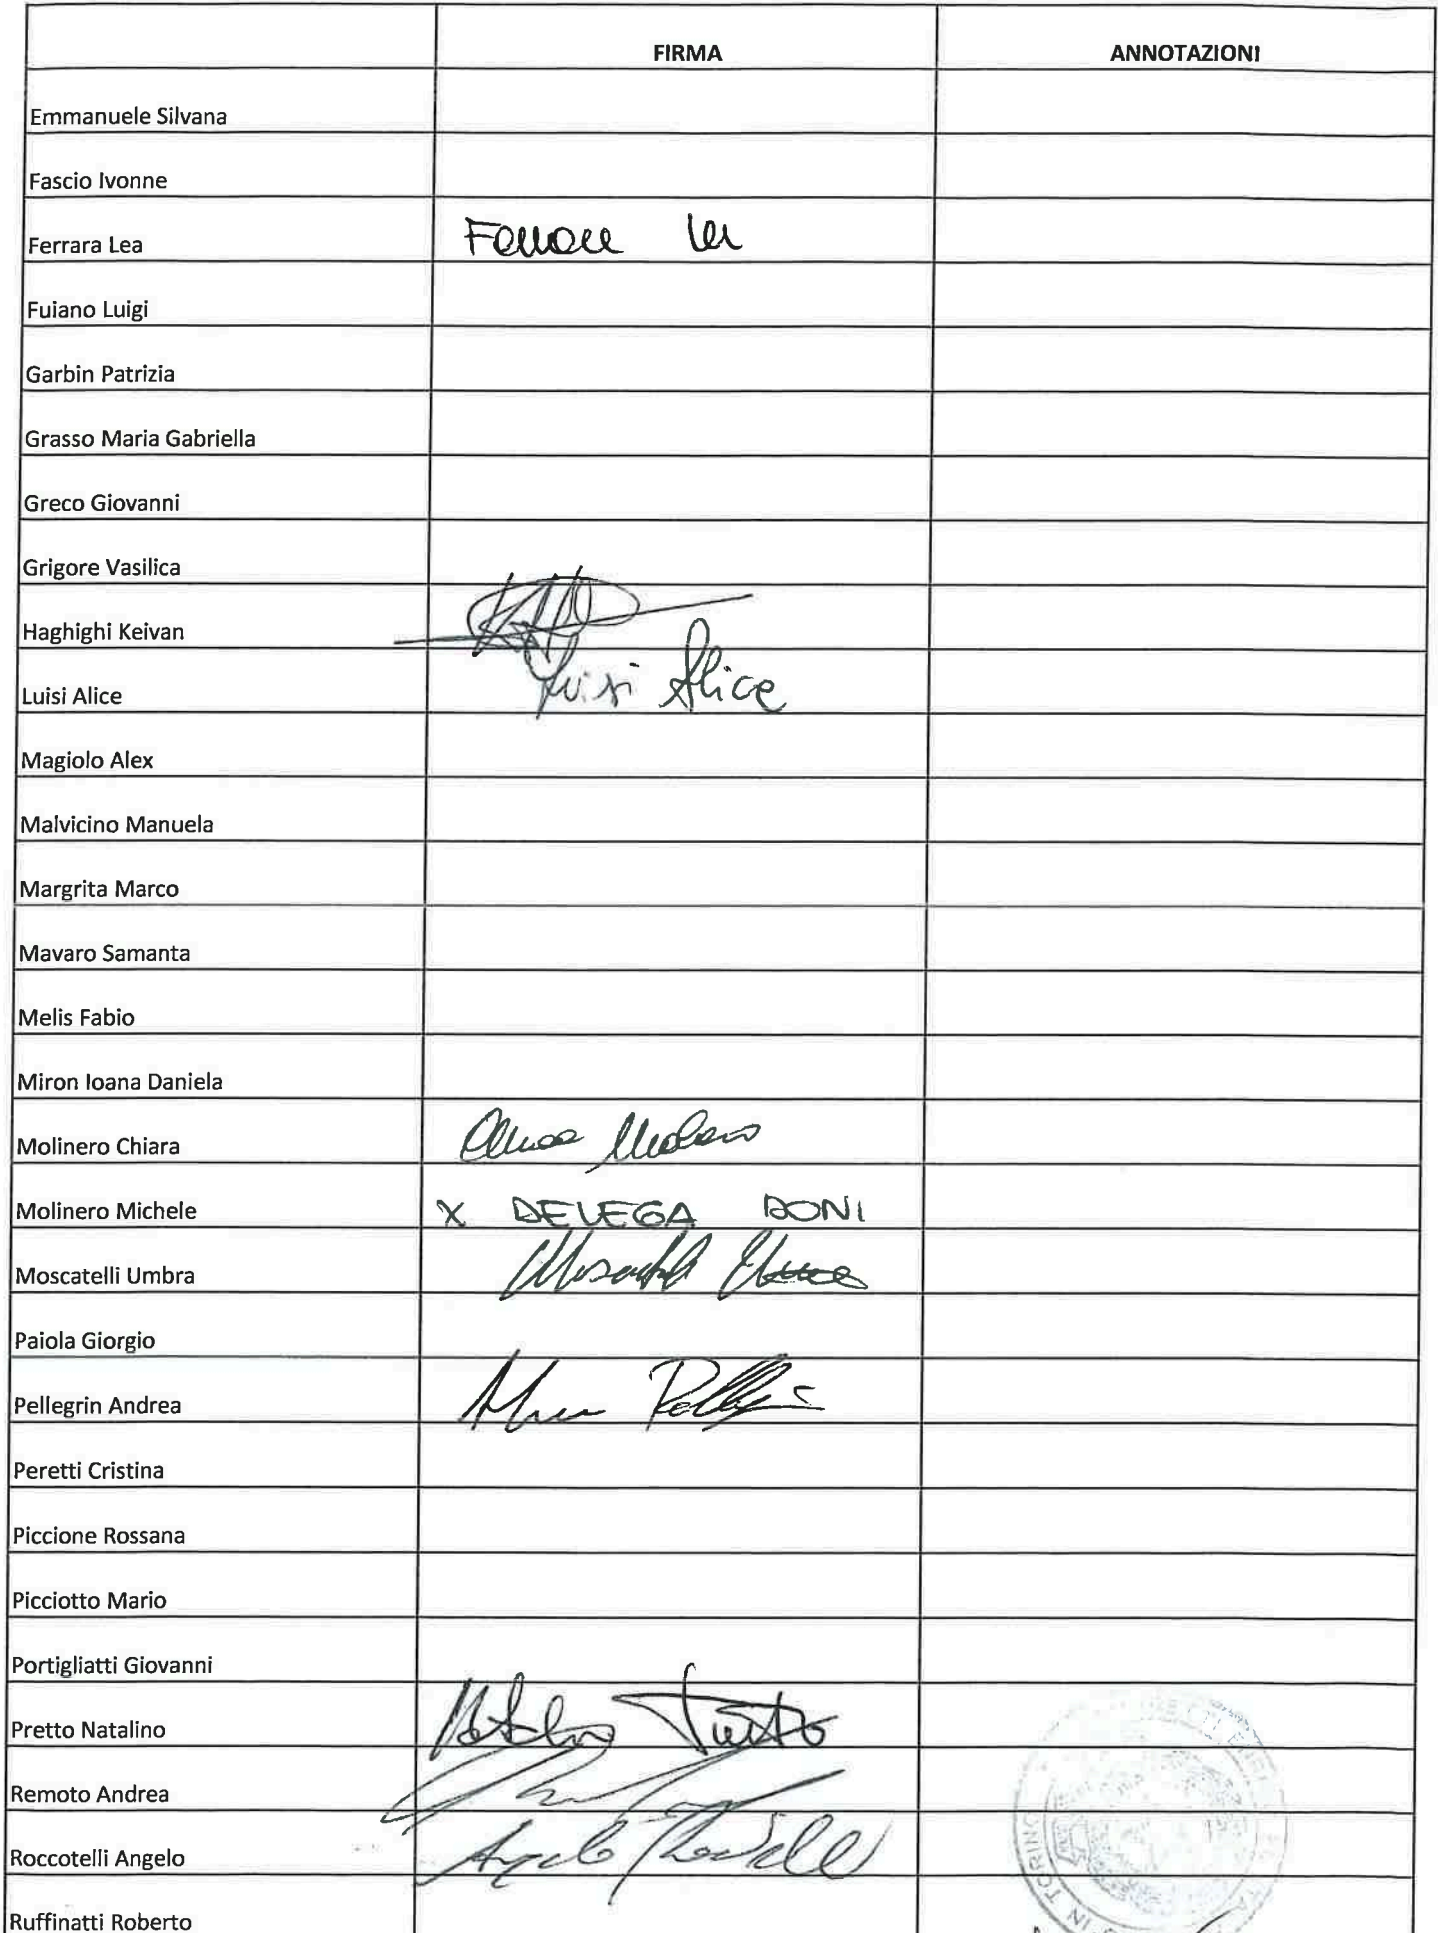 FIRMA ANNOTAZIONI
Emmanuele Silvana
Fascio Ivonne
Ferrara Lea Ferrara Lea
Fuiano Luigi
Garbin Patrizia
Grasso Maria Gabriella
Greco Giovanni
Grigore Vasilica
Haghighi Keivan
Luisi Alice Luisi Alice
Magiolo Alex
Malvicino Manuela
Margrita Marco
Mavaro Samanta
Melis Fabio
Miron Ioana Daniela
Molinero Chiara
Molinero Michele X DELEGA DONI
Moscatelli Umbra
Paiola Giorgio
Pellegrin Andrea
Peretti Cristina
Piccione Rossana
Picciotto Mario
Portigliatti Giovanni
Pretto Natalino
Remoto Andrea
Roccotelli Angelo Angelo
Ruffinatti Roberto
IN TORINO